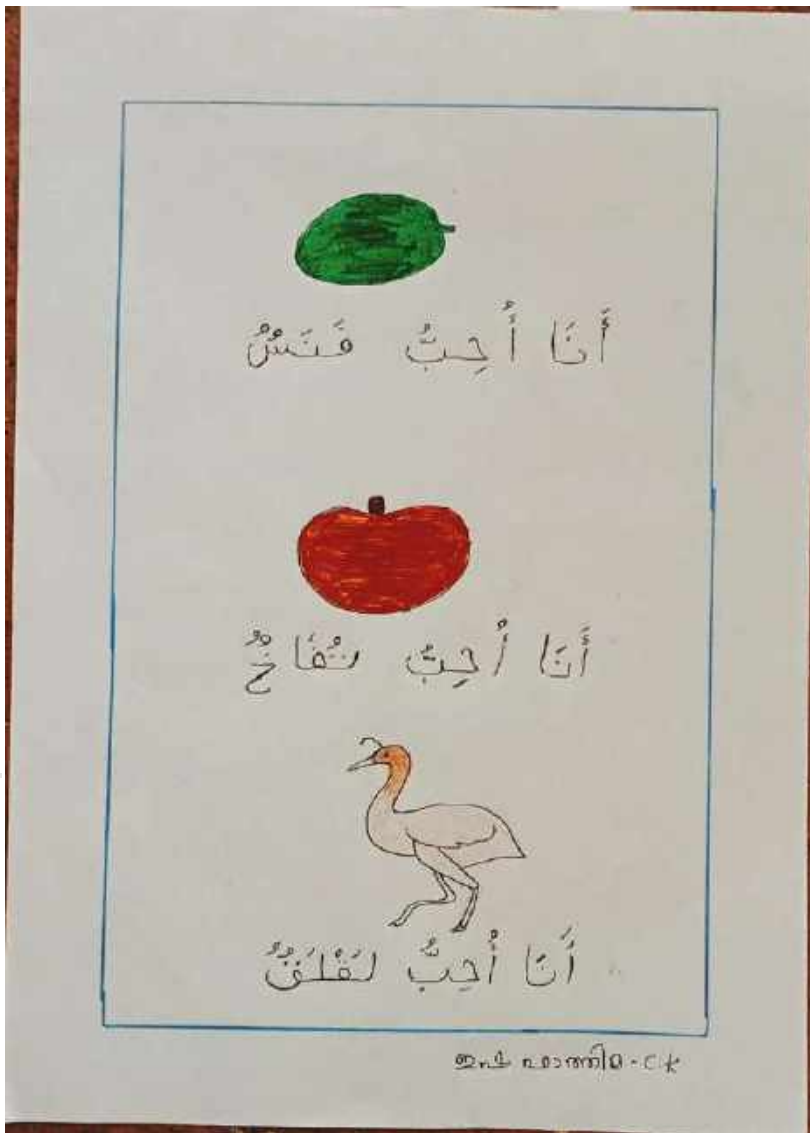 أَنَا أُحِبُّ فَنَسٌ
أَنَا أُحِبُّ تُفَّاحٌ
أَنَا أُحِبُّ لَقْلَقٌ
ഫാത്തിമ - C K